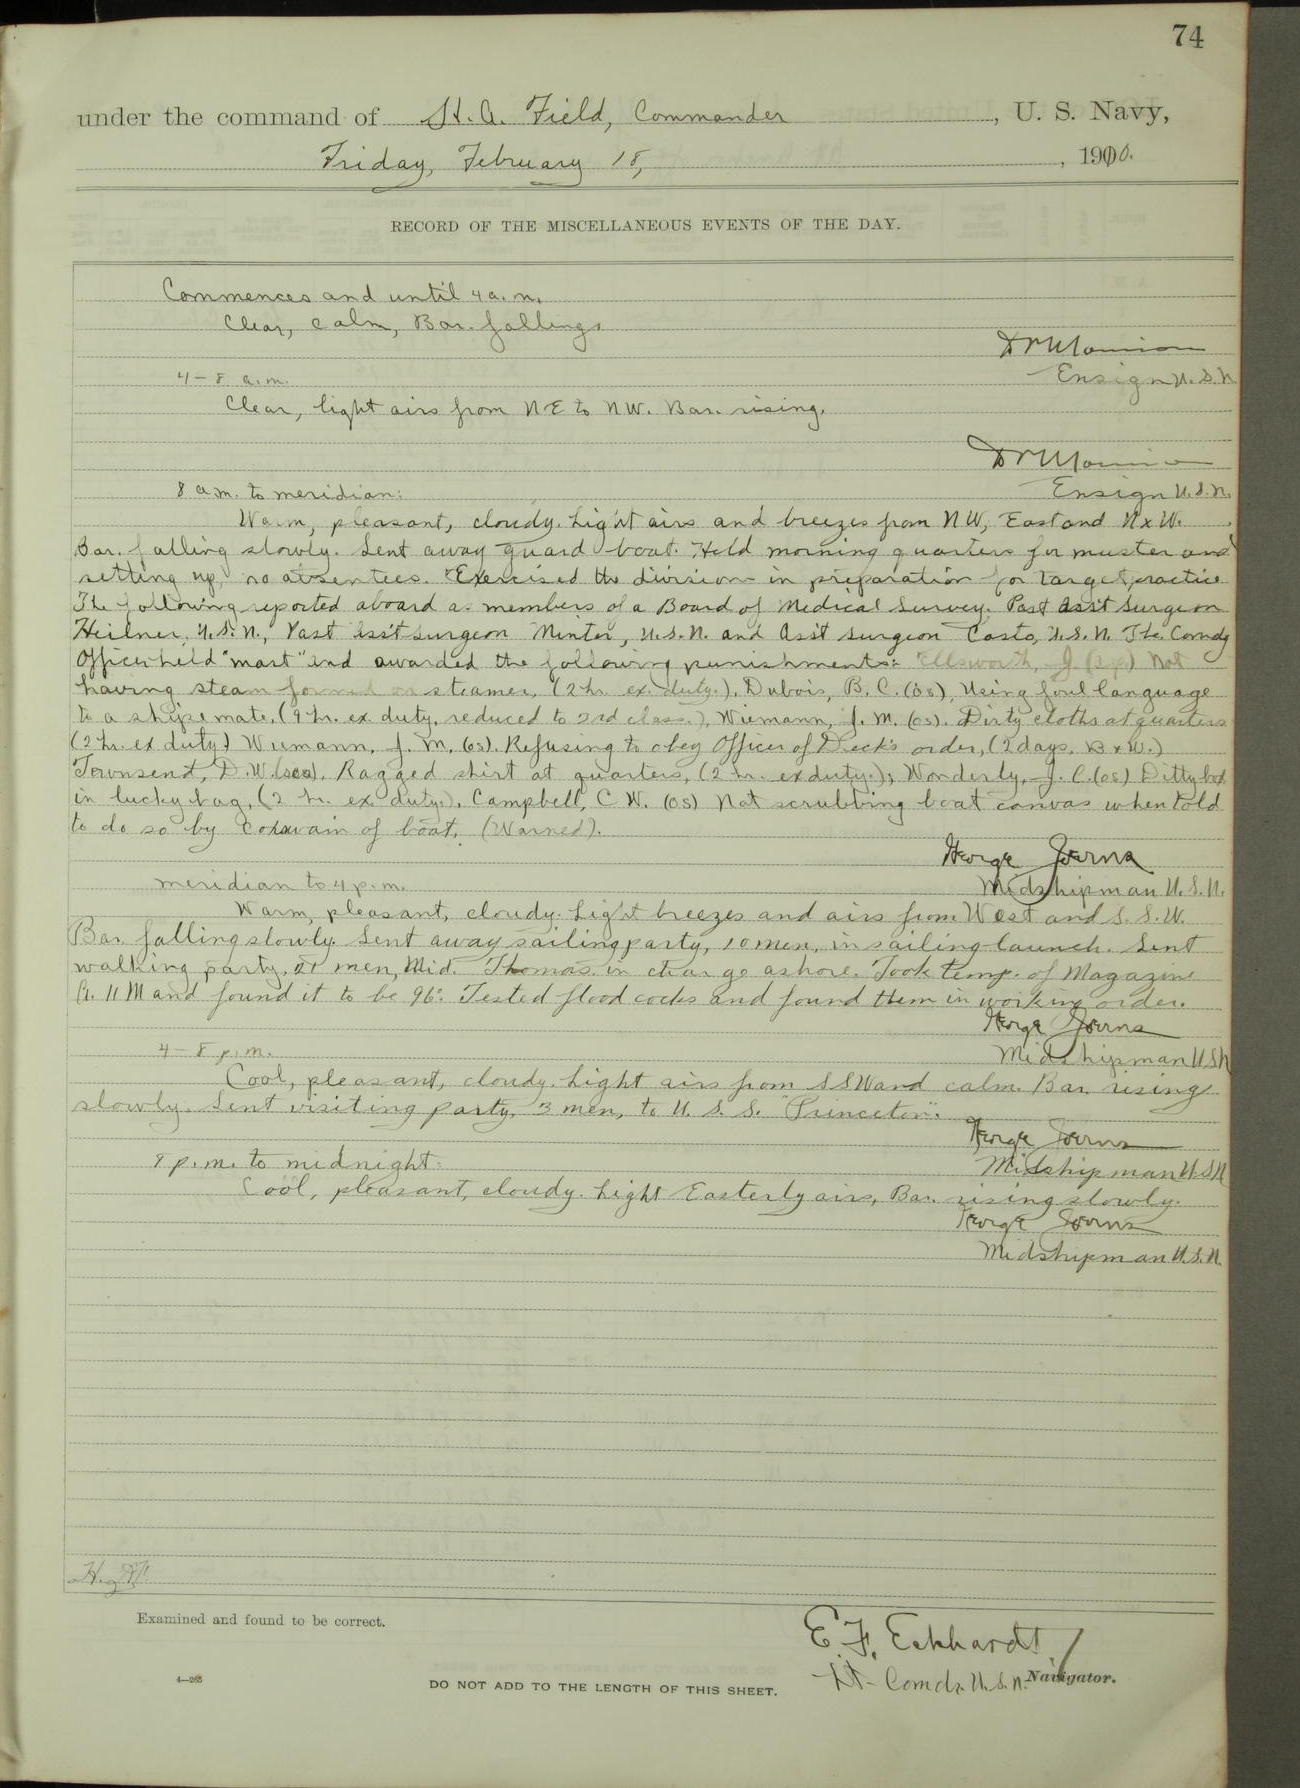 74
under the command of H. A. Field, Commander, U. S. Navy,
Friday, February 18, 1910.
RECORD OF THE MISCELLANEOUS EVENTS OF THE DAY.
Commences and until 4 a. m.
Clear, calm, Bar. falling.
4 – 8 a. m.
Ensign U. S. N.
Clear, light airs from NE to NW. Bar. rising.
Ensign U. S. N.
8 a. m. to meridian:
Warm, pleasant, cloudy. Light airs and breezes from NW, East and NxW.
Bar. falling slowly. Sent away guard boat. Held morning quarters for muster and
setting up, no absentees. Exercised the division in preparation for target practice
The following reported aboard as members of a Board of Medical Survey. Past Ass't Surgeon
Heilner, U. S. N., Past Ass't Surgeon Minter, U. S. N. and Ass't Surgeon Casto, U. S. N. The Comdg
Officer held "mast" and awarded the following punishments: Ellsworth, J. Not
having steam formed on steamer, (2 hr. ex. duty.), Dubois, B. C. (os), Using foul language
to a shipsmate, (9 hr. ex duty, reduced to 2nd class.), Wiemann, J. M. (os). Dirty cloths at quarters
(2 hr. ex duty) Wiemann, J. M. (os). Refusing to obey Officer of Deck's order, (2 days. B & W.)
Townsend, D. W. Ragged shirt at quarters, (2 hr. ex duty.); Wonderly, J. C. (os) Ditty box
in lucky bag, (2 hr. ex duty.), Campbell, C. W. (OS) Not scrubbing boat canvas when told
to do so by Coxswain of boat, (Warned).
George Joerns
meridian to 4 p. m.
Midshipman U. S. N.
Warm, pleasant, cloudy. Light breezes and airs from West and S. S. W.
Bar. falling slowly. Sent away sailing party, 10 men, in sailing launch. Sent
walking party, men, Mid. Thomas in charge ashore. Took temp. of Magazine
A. 11 M and found it to be 96°. Tested flood cocks and found them in working order.
George Joerns
4 – 8 p. m.
Midshipman U S N
Cool, pleasant, cloudy. Light airs from SSW and calm. Bar. rising
slowly. Sent visiting party, 3 men, to U. S. S. "Princeton".
George Joerns
8 p. m. to midnight:
Midshipman U S N
Cool, pleasant, cloudy. Light Easterly airs, Bar. rising slowly.
George Joerns
Midshipman U. S. N.
Examined and found to be correct.
E. F. Eckhardt
Lt- Comdr. U. S. N. Navigator.
4—265
DO NOT ADD TO THE LENGTH OF THIS SHEET.